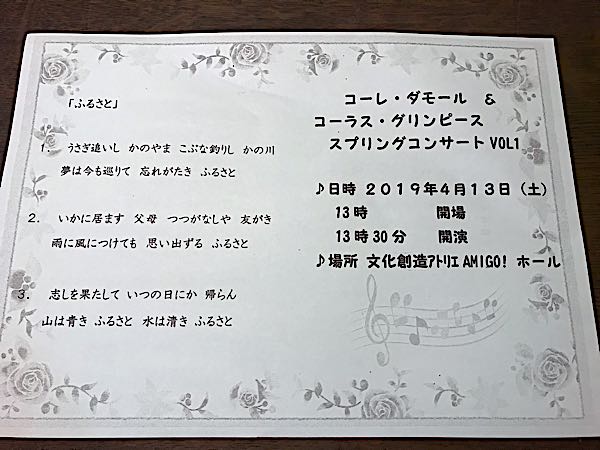 「ふるさと」
1. うさぎ追いし かのやま こぶな釣りし かの川
夢は今も巡りて 忘れがたき ふるさと
2. いかに居ます 父母 つつがなしや 友がき
雨に風につけても 思い出ずる ふるさと
3. 志しを果たして いつの日にか 帰らん
山は青き ふるさと 水は清き ふるさと
コーレ・ダモール &
コーラス・グリンピース
スプリングコンサート VOL1
♪日時 2019年4月13日(土)
13時 開場
13時30分 開演
♪場所 文化創造ｱﾄﾘｴ AMIGO! ホール